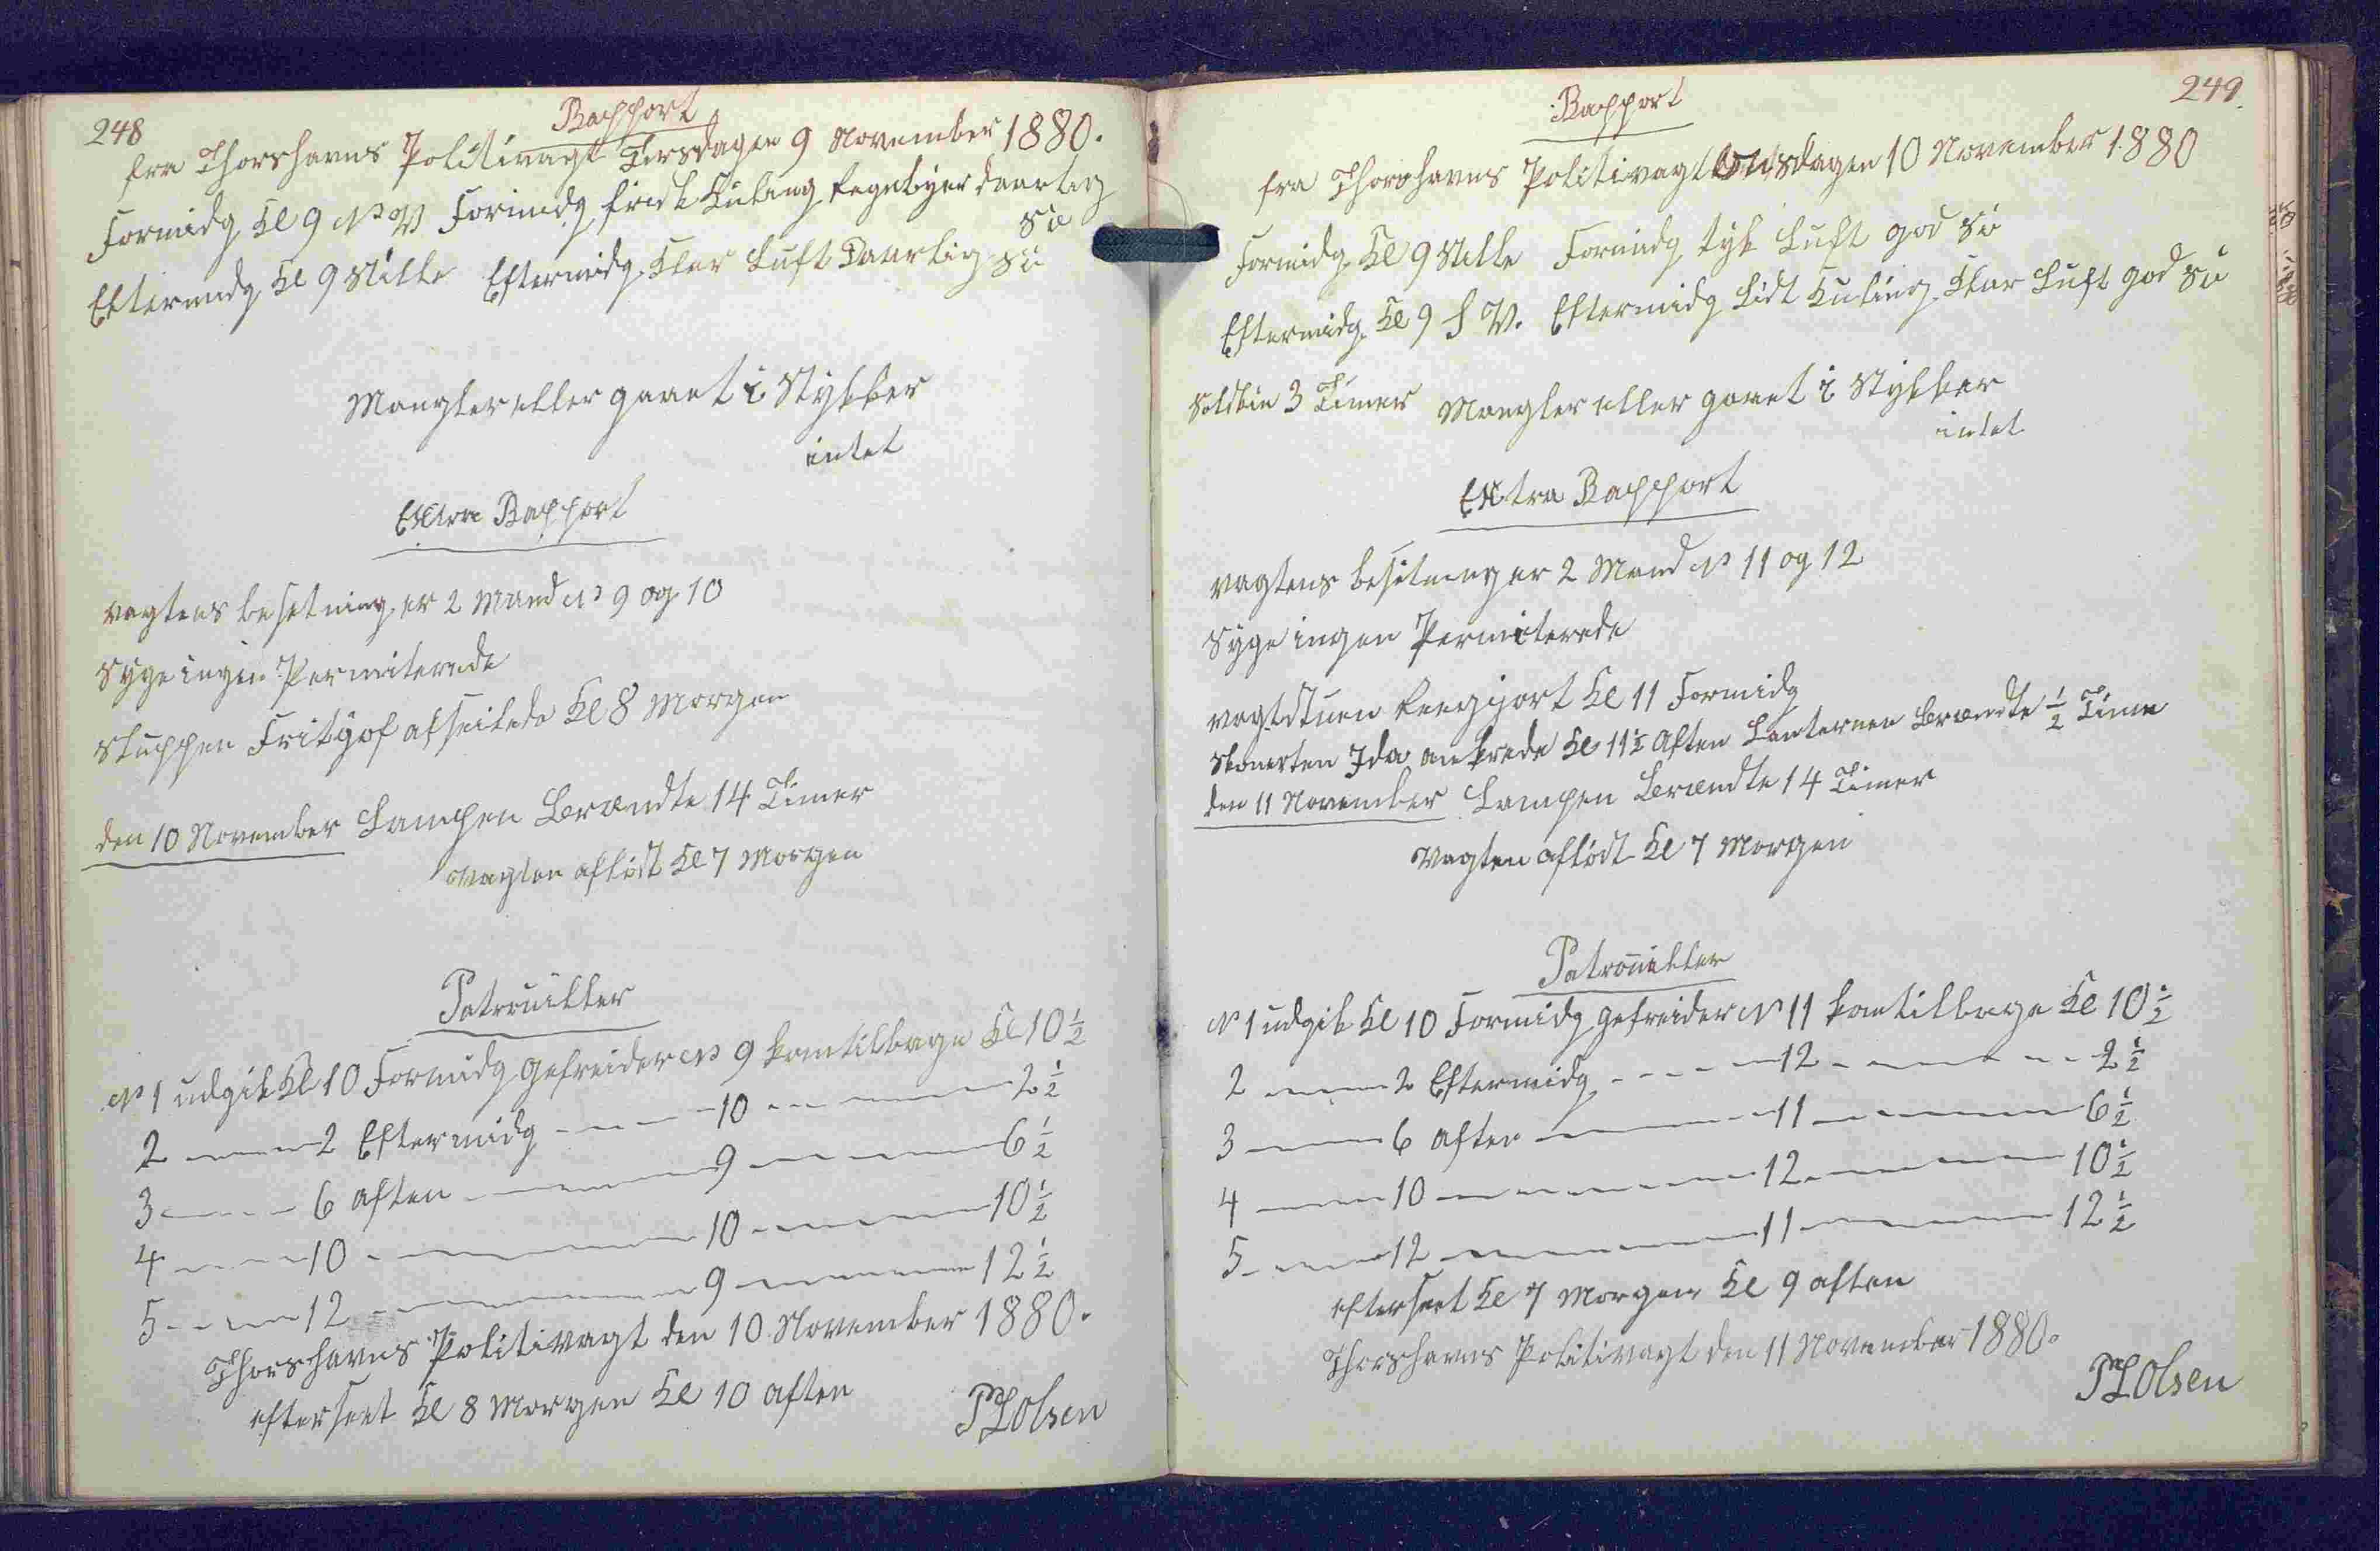 248
Rapport
fra Thorshavns Politivagt Tirsdagen 9 November 1880.
Formidg Kl 9 N V Formidg frisk Kuling Regnbyer daarlig
Sø
Eftermidg Kl 9 Stille Eftermidg Klar Luft Daarlig Sø
Mangler eller gaaet i Stykker
intet
Extra Rapport
Vagtens besetning er 2 Mand No 9 og 10
Syge ingen Permiterede
Sluppen Frityof afseilede Kl 8 Morgen
den 10 November Lampen Brændte 14 Timer
Vagten afløst Kl 7 Morgen
Patrouiller
No 1 udgik Kl 10 Formidg gefreider No 9 kom tilbage Kl 10 1/2
2 — 2 Eftermidg — 10 — 2 1/2
3 — 6 Aften — 9 — 6 1/2
4 — 10 — 10 — 10 1/2
5 — 12 — 9 — 12 1/2
Thorshavns Politivagt den 10 November 1880.
efterseet Kl 8 Morgen Kl 10 Aften
Olsen
249.
Rapport
fra Thorshavns Politivagt Onsdagen 10 November 1880
Formidg Kl 9 Stille Formidg tyk Luft god Sø
Eftermidg Kl 9 S V. Eftermidg Lidt Kuling Klar Luft god Sø
Solskin 3 Timer Mangler eller gaaet i Stykker
intet
Extra Rapport
Vagtens besetning er 2 Mand No 11 og 12
Syge ingen Permiterede
Vagtstuen Reengjort Kl 11 Formidg
Skonerten Ida ankrede Kl 11 1/2 Aften Lanternen Brændte 1/2 Time
den 11 November Lampen Brændte 14 Timer
Vagten afløst Kl 7 Morgen
Patrouiller
No 1 udgik Kl 10 Formidg gefreider No 11 kom tilbage Kl 10 1/2
2 — 2 Eftermidg — 12 — 2 1/2
3 — 6 Aften — 11 — 6 1/2
4 — 10 — 12 — 10 1/2
5 — 12 — 11 — 12 1/2
efterseet Kl 7 Morgen Kl 9 Aften
Thorshavns Politivagt den 11 November 1880.
Olsen